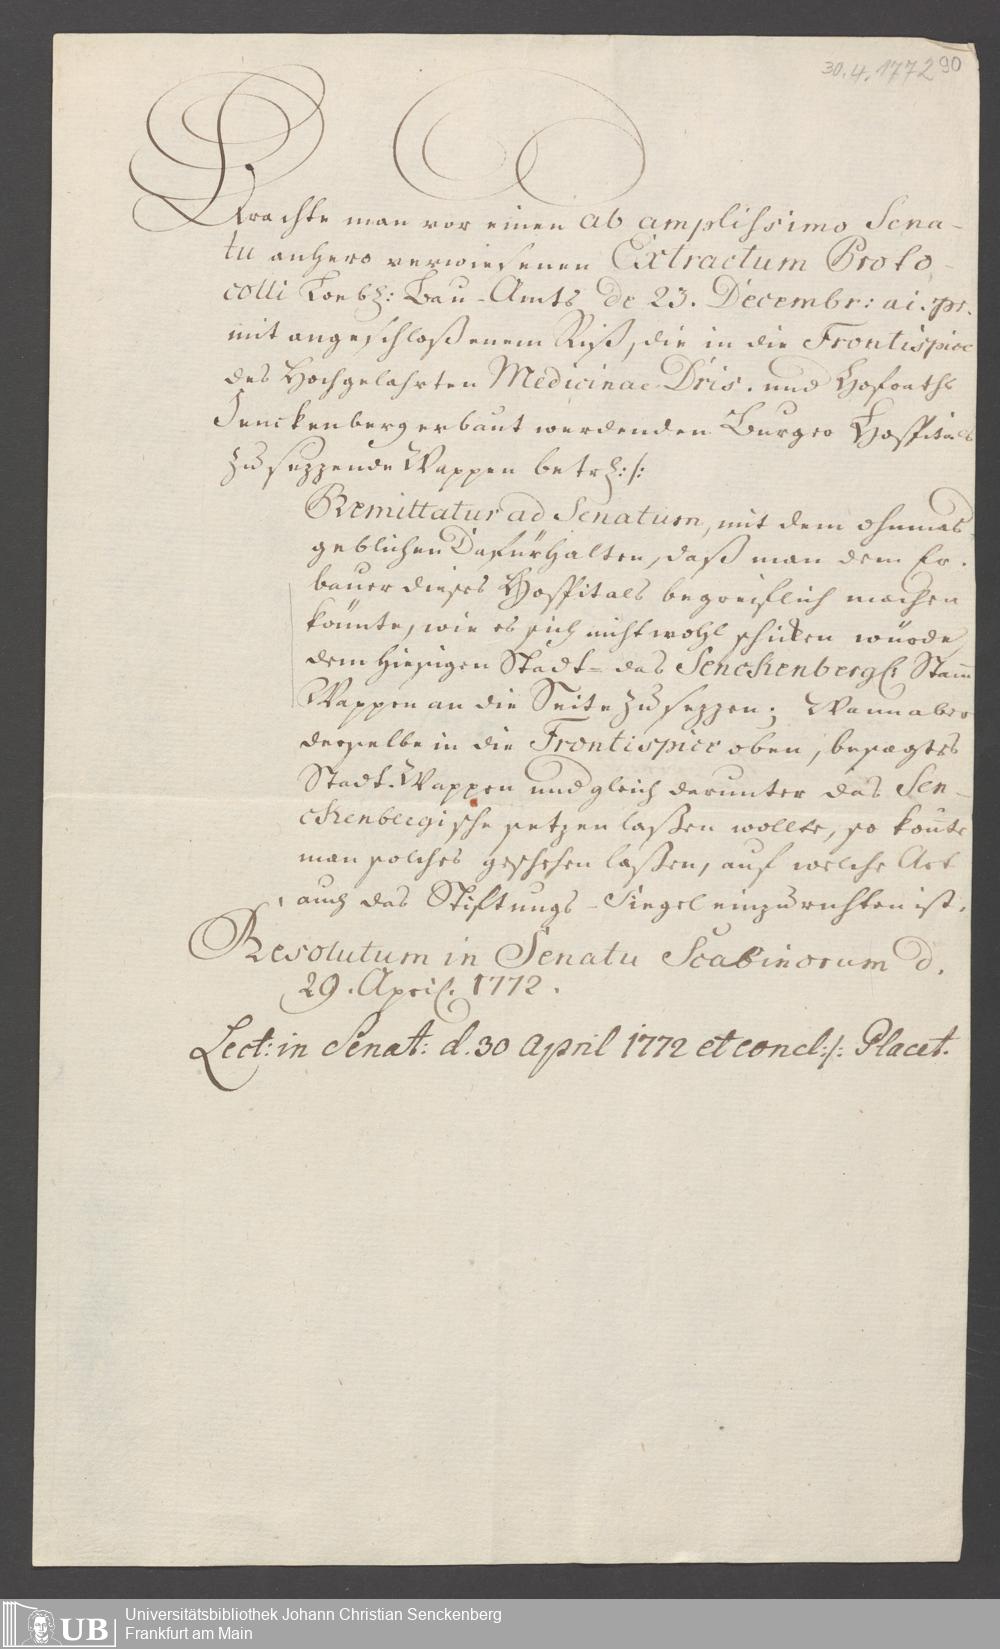 30.4.1772 90
Brachte man vor einen ab amplissimo Sena-
tu anhero verwiesenen Extractum Proto-
colli Loebl: Bau-Amts de 23. Decembr: ai. pr.
mit angeschloßenem Riß, die in die Frontispice
des Hochgelahrten Medicinae Dris. und Hofraths
Senckenberg erbaut werdenden Burger Hospitals
zu sezzende Wappen betrh:/:
Remittatur ad Senatum, mit dem ohnmas-
geblichen Dafürhalten, daß man dem Er-
bauer dieses Hospitals begreiflich machen
könnte, wie es sich nicht wohl schicken würde
dem hiesigen Stadt- das Senckenbergl. Stam̅
Wappen an die Seite zu sezzen; Wann aber
derselbe in die Frontispice oben, besagtes
Stadt-Wappen und gleich darunter das Sen-
ckenbergische setzen laßen wollte, so kon̅te
man solches geschehen laßen, auf welche Art
auch das Stiftungs-Siegel einzurichten ist.
Resolutum in Senatu Scabinorum d.
29. April. 1772.
Lect: in Senat: d. 30 April 1772 et concl:/: Placet.
UB
Universitätsbibliothek Johann Christian Senckenberg
Frankfurt am Main